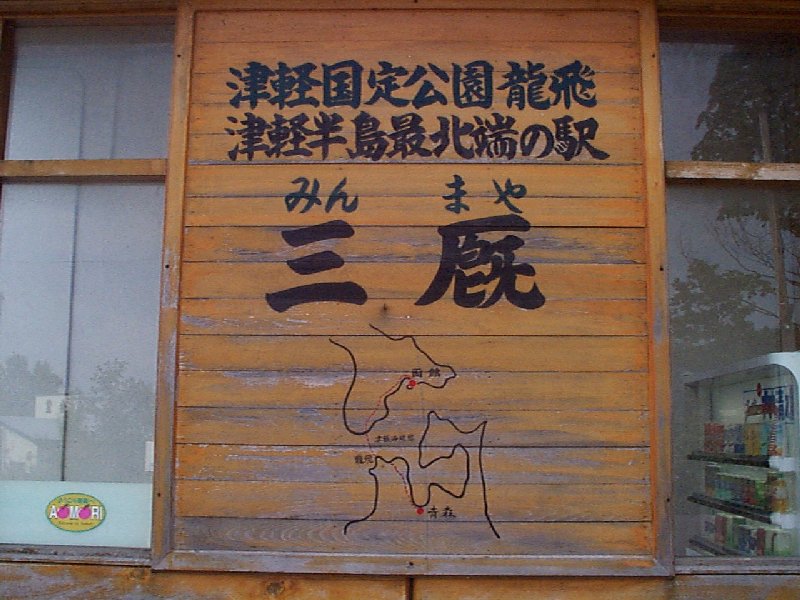 津軽国定公園龍飛
津軽半島最北端の駅
みんまや
三厩
函館
龍飛
青森
AOMORI